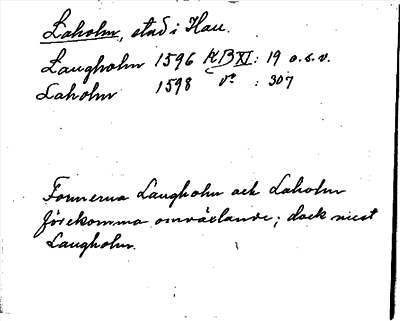 Laholm, stad i Hall.
Laugholm 1596 HB XI: 19 o.s.v.
Laholm 1598 vo : 307
Formerna Laugholm och Laholm
förekomma omväxlande; dock mest
Laugholm.